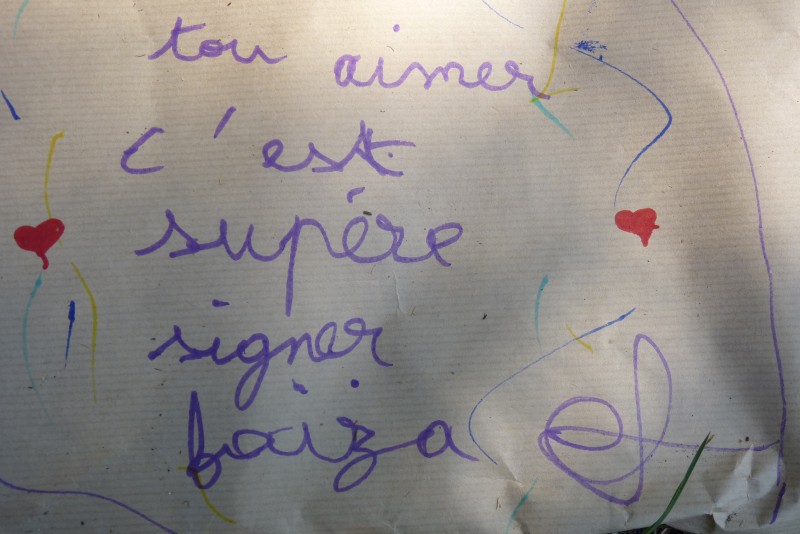 tou aimer
c'est
supére
signer
faïza